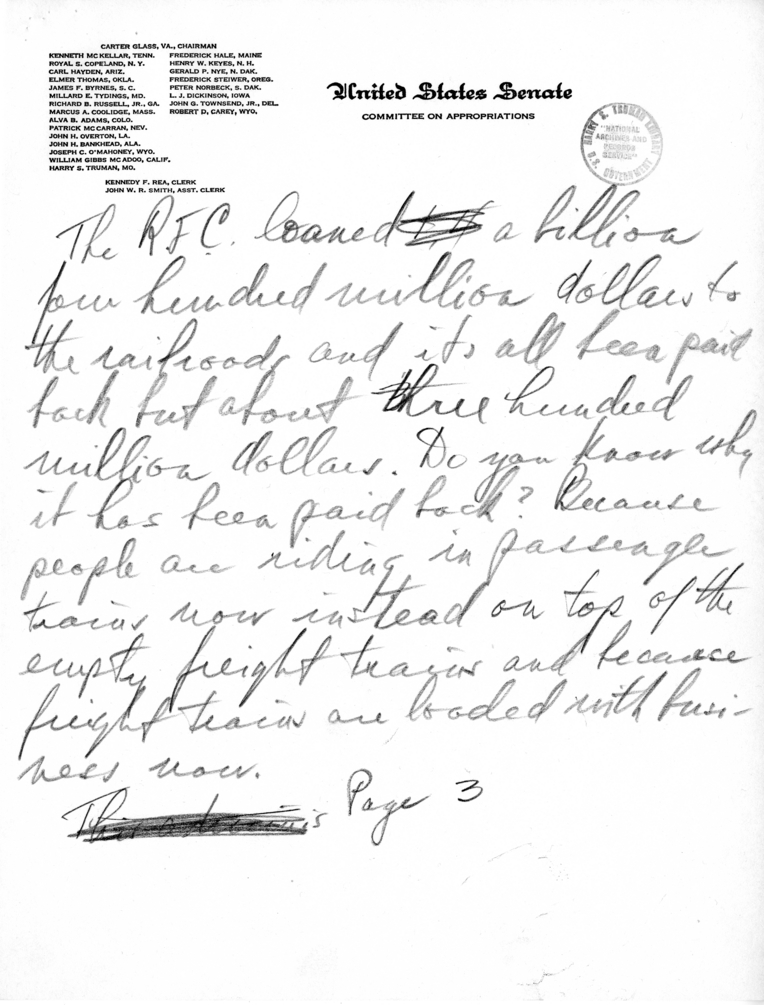 CARTER GLASS, VA., CHAIRMAN
KENNETH McKELLAR, TENN. FREDERICK HALE, MAINE
ROYAL S. COPELAND, N. Y. HENRY W. KEYES, N. H.
CARL HAYDEN, ARIZ. GERALD P. NYE, N. DAK.
ELMER THOMAS, OKLA. FREDERICK STEIWER, OREG.
JAMES F. BYRNES, S. C. PETER NORBECK, S. DAK.
MILLARD E. TYDINGS, MD. L. J. DICKINSON, IOWA
RICHARD B. RUSSELL, JR., GA. JOHN G. TOWNSEND, JR., DEL.
MARCUS A. COOLIDGE, MASS. ROBERT D. CAREY, WYO.
ALVA B. ADAMS, COLO.
PATRICK McCARRAN, NEV.
JOHN H. OVERTON, LA.
JOHN H. BANKHEAD, ALA.
JOSEPH C. O'MAHONEY, WYO.
WILLIAM GIBBS McADOO, CALIF.
HARRY S. TRUMAN, MO.
KENNEDY F. REA, CLERK
JOHN W. R. SMITH, ASST. CLERK
United States Senate
COMMITTEE ON APPROPRIATIONS
HARRY S. TRUMAN LIBRARY
"NATIONAL
ARCHIVES AND
RECORDS
SERVICE"
U.S. GOVERNMENT
The R.F.C. loaned a billion
four hundred million dollars to
the railroads and its all been paid
back but about three hundred
million dollars. Do you know why
it has been paid back? Because
people are riding in passenger
trains now instead on top of the
empty freight trains and because
freight trains are loaded with busi-
ness now.
Page 3